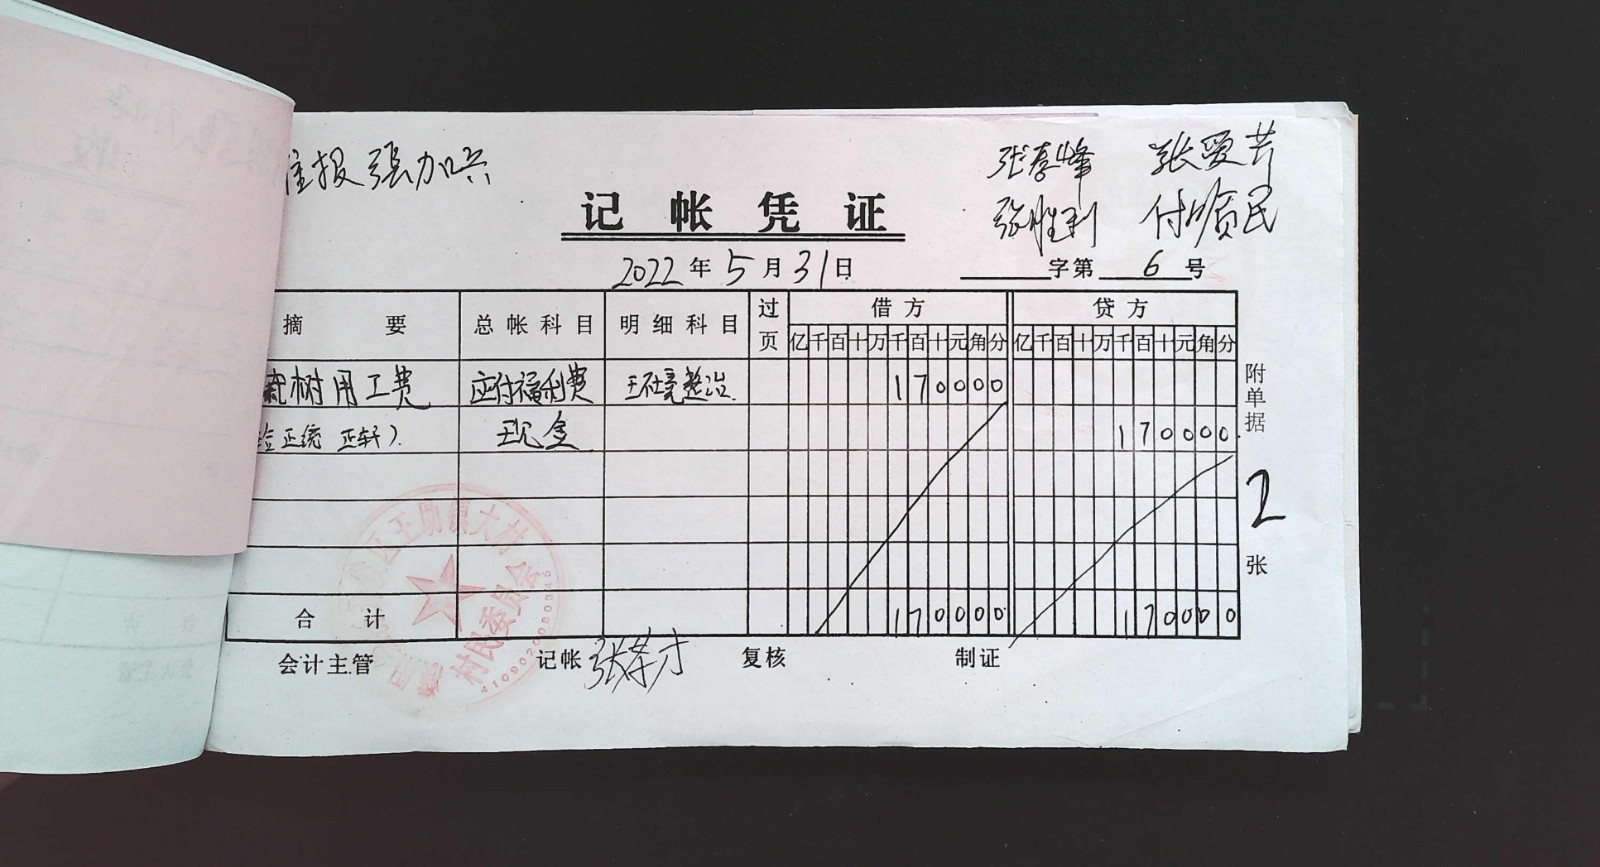 准报 张加兴
张春峰 张爱芳
张胜利 付贵民
记帐凭证
2022年5月31日 字第6号
摘要 总帐科目 明细科目 过页 借方 贷方
亿千百十万千百十元角分 亿千百十万千百十元角分
树用工费 应付福利费 整治 170000
正统 正轩) 现金 170000
附单据 2 张
合计 170000 170000
会计主管 记帐 复核 制证
村民委员会
4109020000346